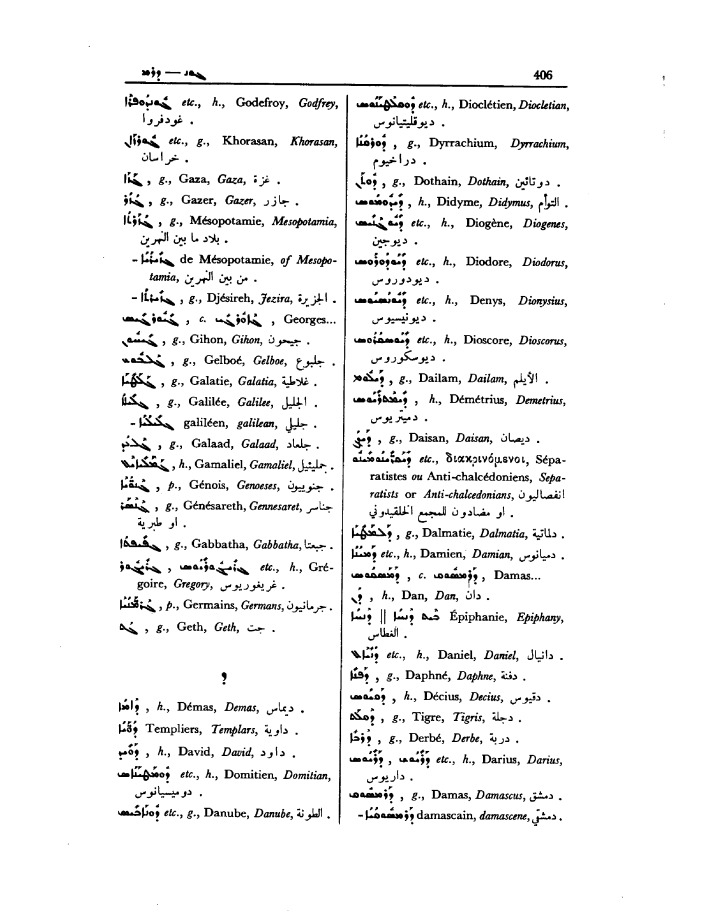 ܓܘܕ — ܕܪܡ 406
etc., h., Godefroy, Godfrey,
غودفروا .
etc., g., Khorasan, Khorasan,
خراسان .
ܓܙܐ , g., Gaza, Gaza, غزة .
ܓܙܪ , g., Gazer, Gazer, جازر .
ܓܙܪܬܐ , g., Mésopotamie, Mesopotamia,
بلاد ما بين النهرين .
de Mésopotamie, of Mesopo-
tamia, من بين النهرين .
, g., Djésireh, Jezira, الجزيرة .
, c. ܓܐܘܪܓܝܣ , Georges...
ܓܝܚܘܢ , g., Gihon, Gihon, جيحون .
, g., Gelboé, Gelboe, جلبوع .
ܓܠܛܝܐ , g., Galatie, Galatia, غلاطية .
ܓܠܝܠܐ , g., Galilée, Galilee, الجليل .
galiléen, galilean, جليلي .
ܓܠܥܕ , g., Galaad, Galaad, جلعاد .
ܓܡܠܝܐܝܠ , h., Gamaliel, Gamaliel, جمليئيل .
, p., Génois, Genoeses, جنويون .
ܓܢܣܪ , g., Génésareth, Gennesaret, جناسر
او طبرية .
ܓܦܝܦܬܐ , g., Gabbatha, Gabbatha, جبعتا .
etc., h., Gré-
goire, Gregory, غريغوريوس .
, p., Germains, Germans, جرمانيون .
ܓܬ , g., Geth, Geth, جت .
ܕ
ܕܐܡܐ , h., Démas, Demas, ديماس .
Templiers, Templars, داوية .
ܕܘܝܕ , h., David, David, داود .
etc., h., Domitien, Domitian,
دوميسيانوس .
etc., g., Danube, Danube, الطونة .
etc., h., Dioclétien, Diocletian,
ديوقليتيانوس .
, g., Dyrrachium, Dyrrachium,
دراخيوم .
ܕܘܬܢ , g., Dothain, Dothain, دوتائين .
ܕܝܕܘܡܘܣ , h., Didyme, Didymus, التوأم .
etc., h., Diogène, Diogenes,
ديوجين .
ܕܝܘܕܘܪܘܣ etc., h., Diodore, Diodorus,
ديودوروس .
etc., h., Denys, Dionysius,
ديونيسيوس .
etc., h., Dioscore, Dioscorus,
ديوسكوروس .
ܕܝܠܘܡ , g., Dailam, Dailam, الأيلم .
, h., Démétrius, Demetrius,
دميتريوس .
ܕܝܨܢ , g., Daisan, Daisan, ديصان .
etc., διακρινόμενοι, Sépa-
ratistes ou Anti-chalcédoniens, Sepa-
ratists or Anti-chalcedonians, انفصاليون
او مضادون للمجمع الخلقيدوني .
ܕܠܡܛܝܐ , g., Dalmatie, Dalmatia, دلماتية .
ܕܡܝܢܐ etc., h., Damien, Damian, دميانوس .
, c. ܕܪܡܣܘܩ , Damas...
ܕܢ , h., Dan, Dan, دان .
ܕܢܚܐ || ܕܢܚܐ Épiphanie, Epiphany,
الغطاس .
ܕܢܝܐܝܠ etc., h., Daniel, Daniel, دانيال .
ܕܦܢܐ , g., Daphné, Daphne, دفنة .
, h., Décius, Decius, دقيوس .
ܕܩܠܬ , g., Tigre, Tigris, دجلة .
ܕܪܒܐ , g., Derbé, Derbe, دربة .
etc., h., Darius, Darius,
داريوس .
ܕܪܡܣܘܩ , g., Damas, Damascus, دمشق .
damascain, damascene, دمشقي .